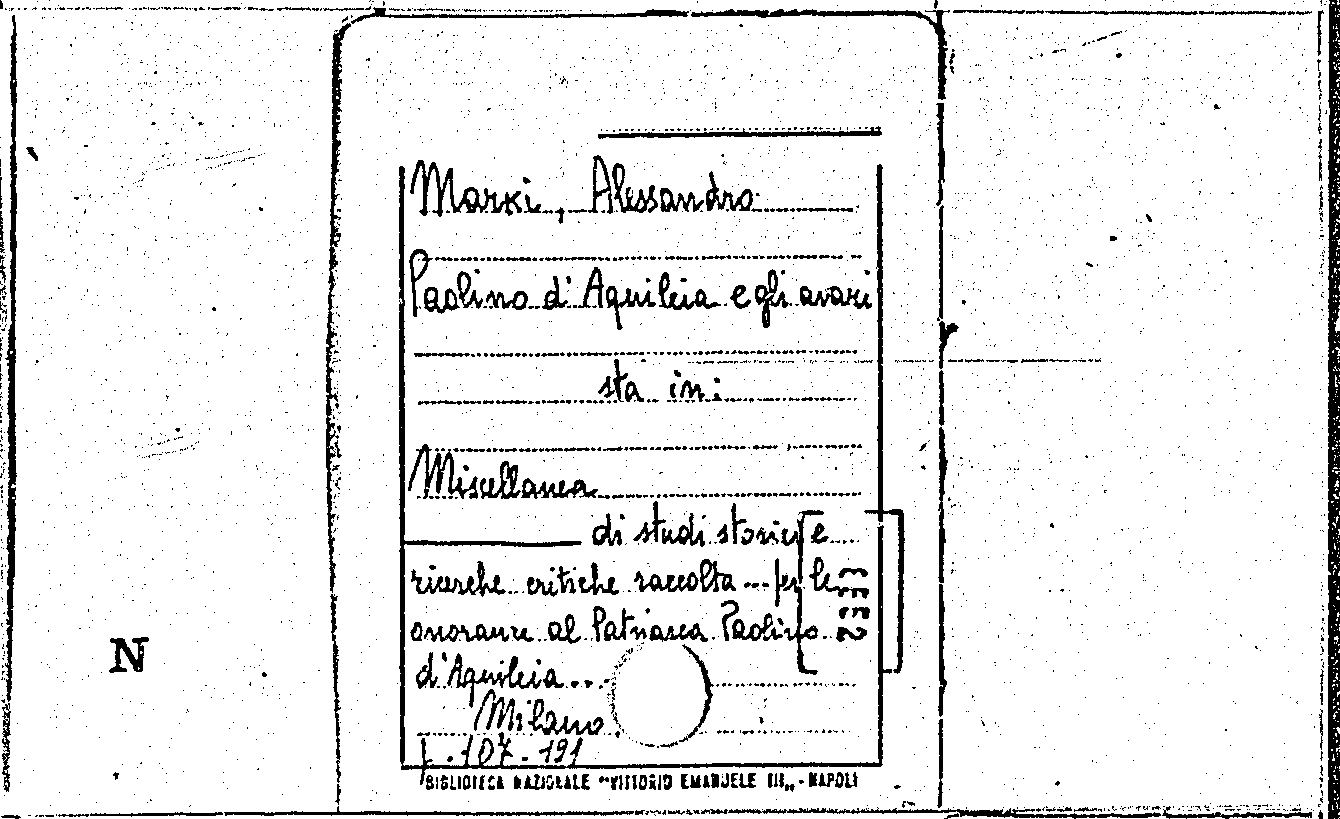 Marki, Alessandro
Paolino d'Aquileia e gli avari
sta in:
Miscellanea
di studi storici e
ricerche critiche raccolta... per le
onoranze al Patriarca Paolino
d'Aquileia...
Milano
p. 107-191
N
BIBLIOTECA NAZIONALE "VITTORIO EMANUELE III„ - NAPOLI